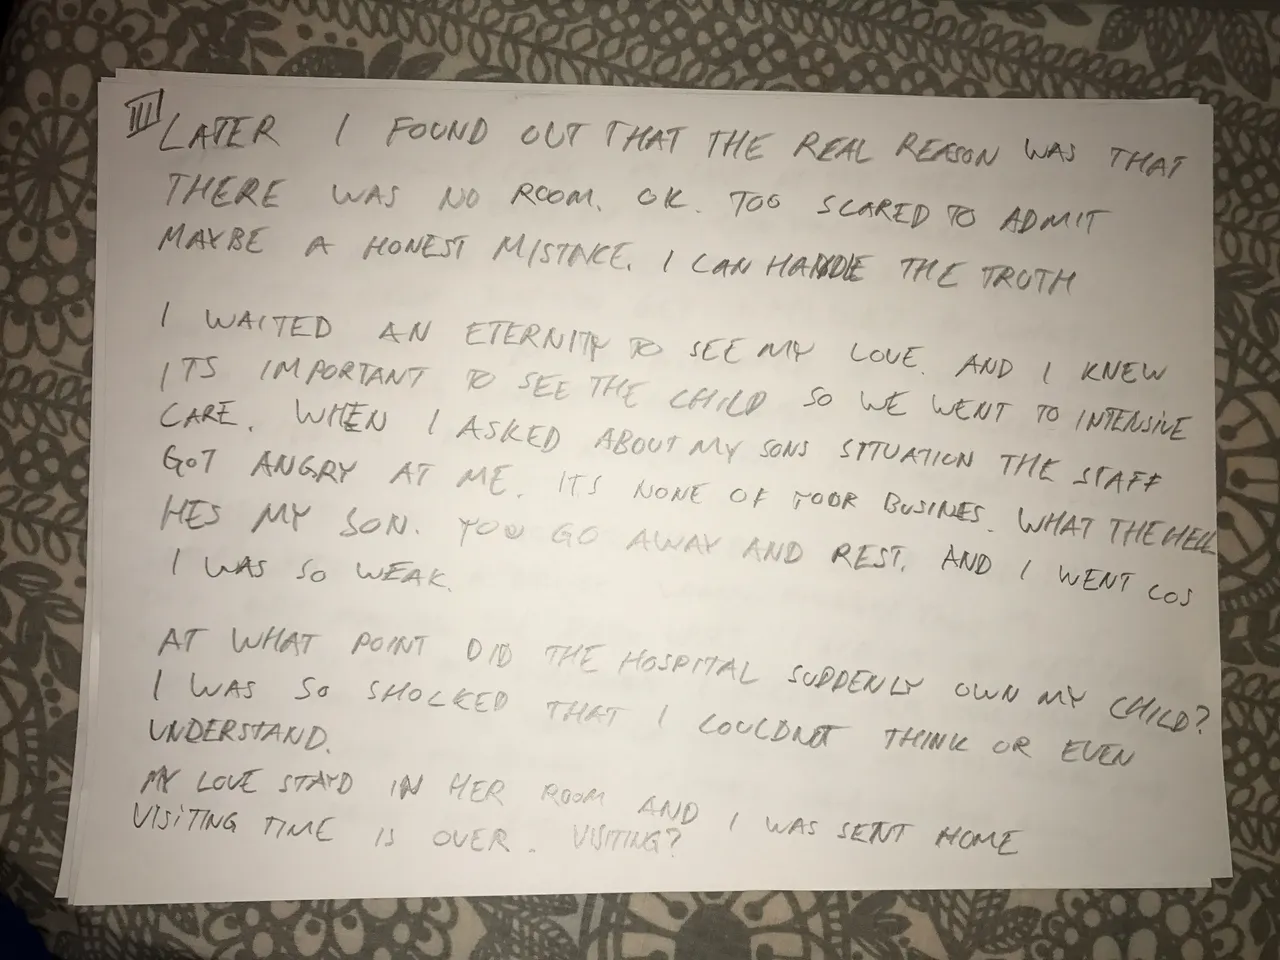 III
LATER I FOUND OUT THAT THE REAL REASON WAS THAT
THERE WAS NO ROOM. OK. TOO SCARED TO ADMIT
MAYBE A HONEST MISTAKE. I CAN HANDLE THE TRUTH
I WAITED AN ETERNITY TO SEE MY LOVE. AND I KNEW
ITS IMPORTANT TO SEE THE CHILD SO WE WENT TO INTENSIVE
CARE. WHEN I ASKED ABOUT MY SONS SITUATION THE STAFF
GOT ANGRY AT ME. ITS NONE OF YOUR BUSINES. WHAT THE HELL
HES MY SON. YOU GO AWAY AND REST. AND I WENT COS
I WAS SO WEAK.
AT WHAT POINT DID THE HOSPITAL SUDDENLY OWN MY CHILD?
I WAS SO SHOCKED THAT I COULDNT THINK OR EVEN
UNDERSTAND.
MY LOVE STAYD IN HER ROOM AND I WAS SENT HOME
VISITING TIME IS OVER. VISITING?